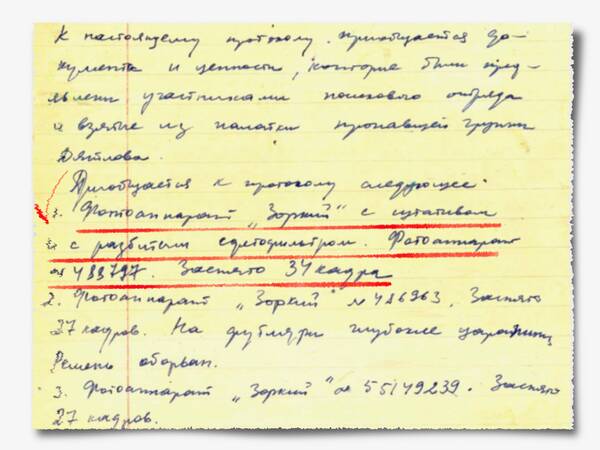 К настоящему протоколу приобщается до-
кументы и ценности, которые были пред-
ъявлены участниками поискового отряда
и взятые из палатки пропавшей группы
Дятлова.
Приобщается к протоколу следующее:
1. Фотоаппарат „Зоркий" с штативом
и с разбитым светофильтром. Фотоаппарат
№ 488797. Заснято 34 кадра
2. Фотоаппарат „Зоркий" № 486963. Заснято
27 кадров. На футляре глубокие царапины
Ремень оборван.
3. Фотоаппарат „Зоркий" № 55149239. Заснято
27 кадров.